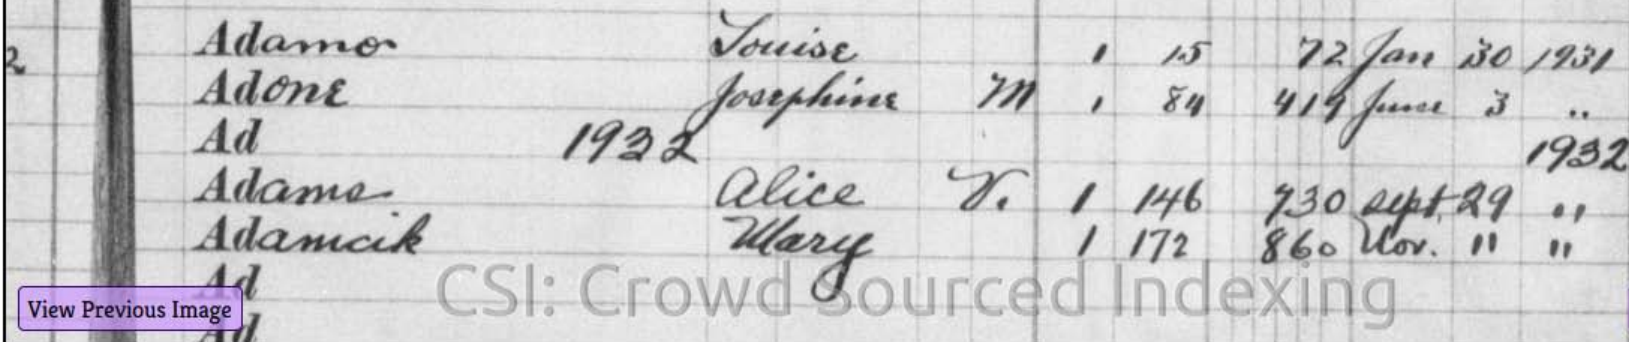 2
Adamo Louise 1 15 72 Jan 30 1931
Adone Josephine M 1 84 419 June 3 "
Ad 1932 1932
Adams Alice V. 1 146 730 Sept. 29 "
Adamcik Mary 1 172 860 Nov. " "
Ad
CSI: Crowd Sourced Indexing
View Previous Image
Ad